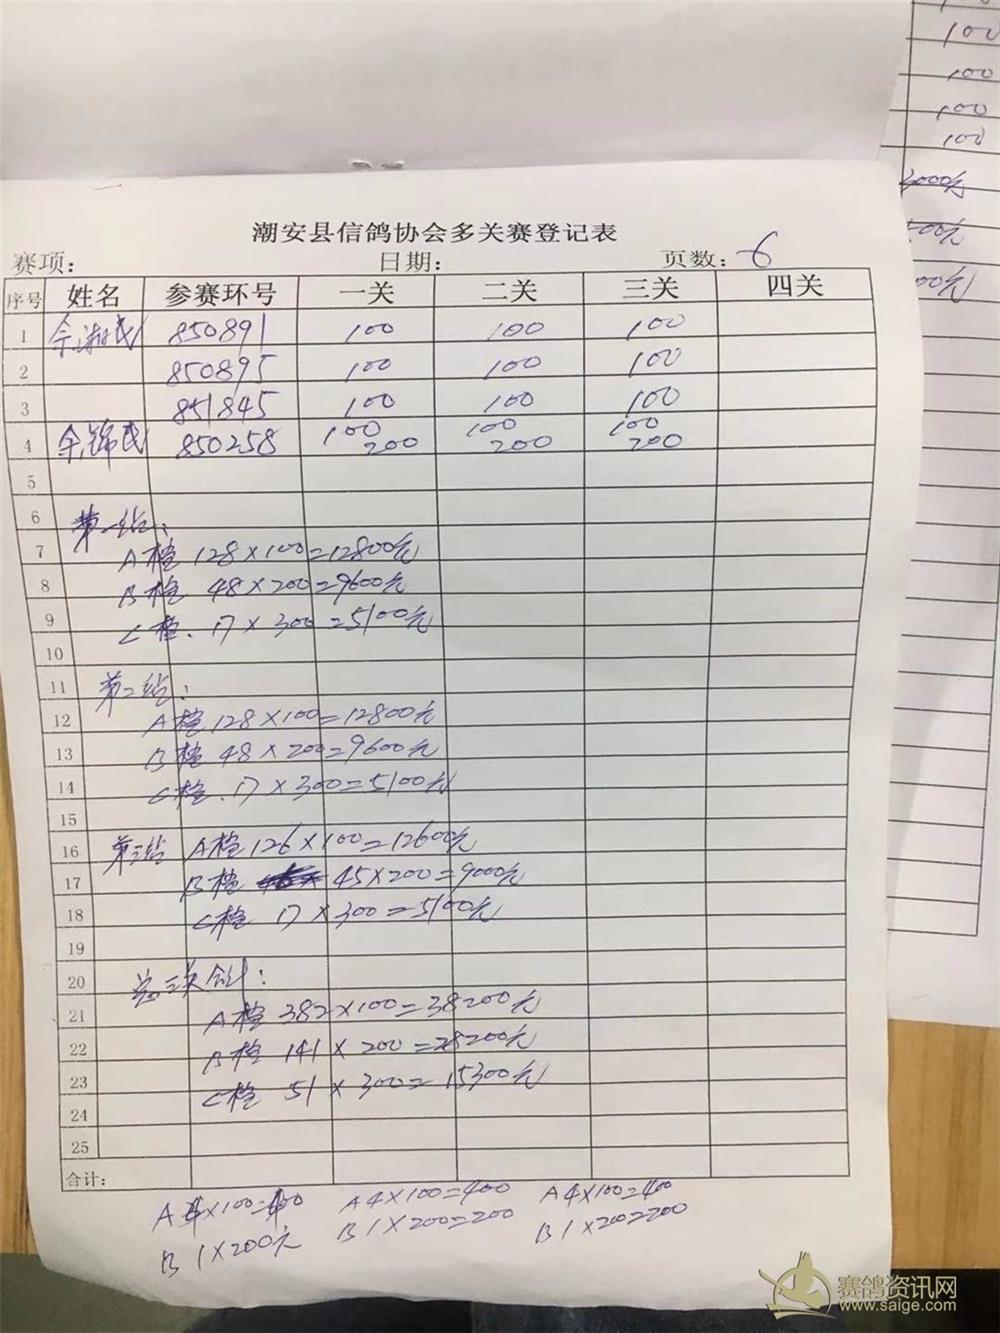 100
100
100
100
潮安县信鸽协会多关赛登记表
赛项: 日期: 页数: 6
序号 姓名 参赛环号 一关 二关 三关 四关
1 余湘民 850891 100 100 100
2 850895 100 100 100
3 851845 100 100 100
4 余锦民 850258 100 200 100 200 100 200
5
6 第一站:
7 A档 128×100=12800元
8 B档 48×200=9600元
9 C档. 17×300=5100元
10
11 第二站:
12 A档 128×100=12800元
13 B档 48×200=9600元
14 C档. 17×300=5100元
15
16 第三站 A档 126×100=12600元
17 B档 45×200=9000元
18 C档 17×300=5100元
19
20 总三关合计:
21 A档 382×100=38200元
22 B档 141×200=28200元
23 C档 51×300=15300元
24
25
合计:
A4×100=400 A4×100=400 A4×100=400
B1×200元 B1×200=200 B1×200=200
赛鸽资讯网
www.saige.com